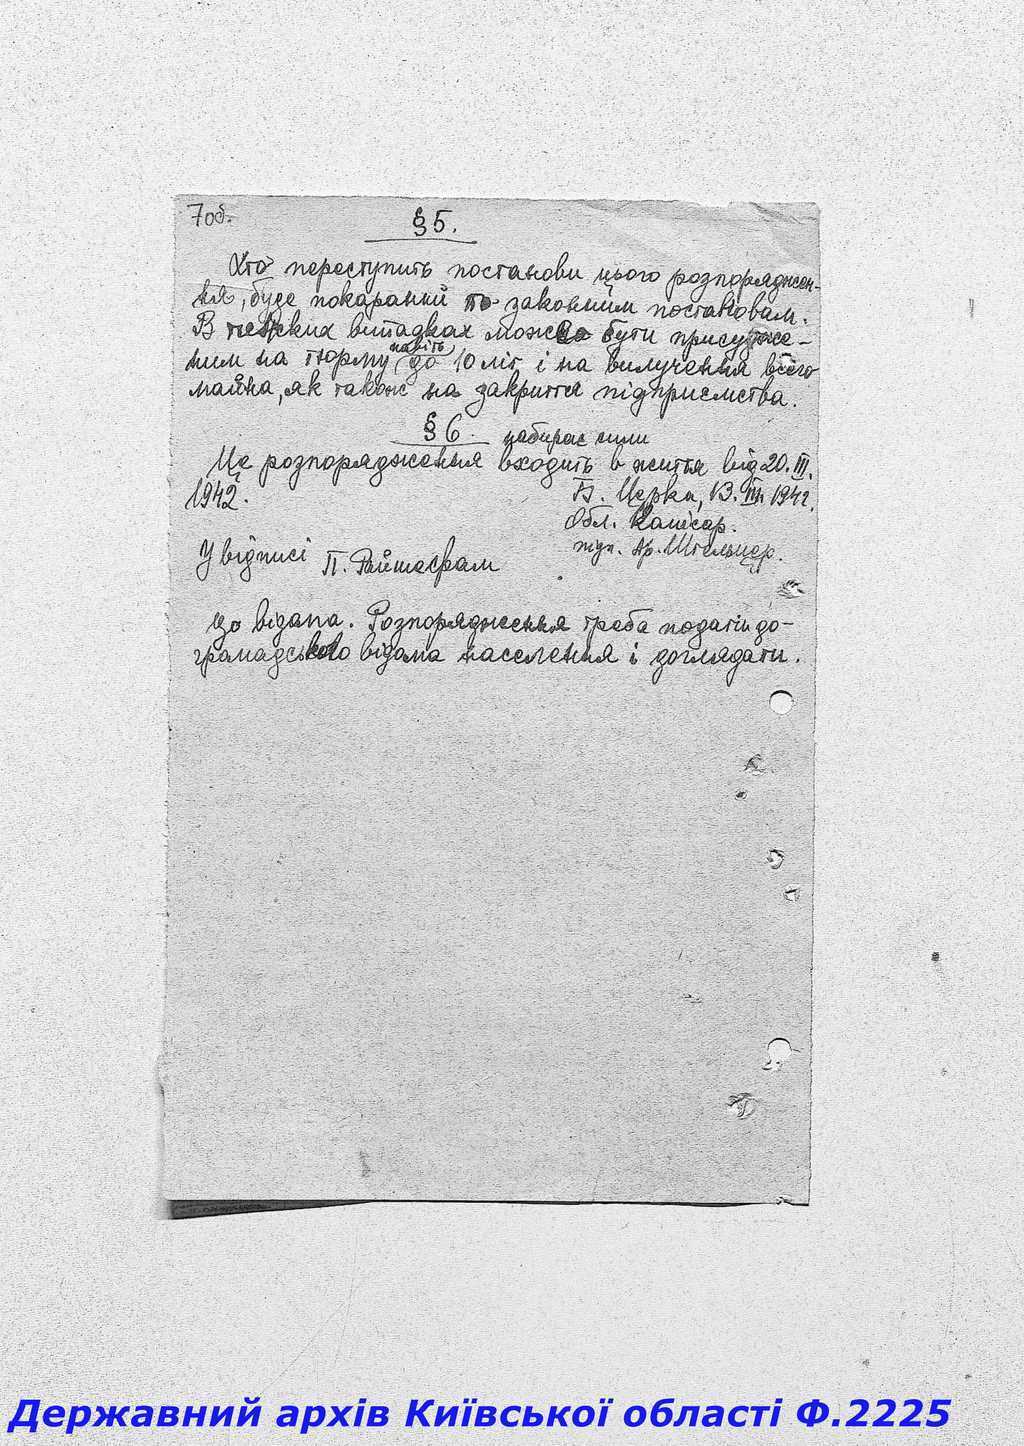 7 об.
§ 5.
Хто переступить постанови цього розпоряджен-
ня, буде покараний по законним постановам.
В тяжких випадках може бути присудже-
ним на тюрму навіть до 10 літ і на вилучення всего
майна, як також на закриття підприємства.
§ 6.
набирає сили
Це розпорядження входить в життя від 20. III.
1942.
Б. Церква, 13. III. 1942.
Обл. Комісар.
підп. др. Штельцер.
У відписі П.
до відома. Розпорядження треба подати до-
грамадського відома населення і доглядати.
Державний архів Київської області Ф.2225